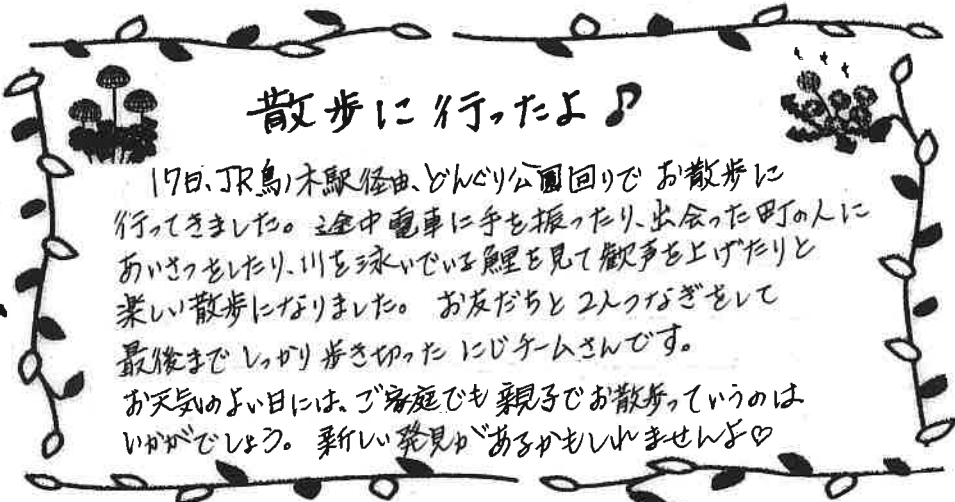 散歩に行ったよ♪
17日、JR鳥ノ木駅経由、どんぐり公園回りでお散歩に
行ってきました。途中電車に手を振ったり、出会った町の人に
あいさつをしたり、川を泳いでいる鯉を見て歓声を上げたりと
楽しい散歩になりました。お友だちと2人つなぎをして
最後までしっかり歩き切ったにじチームさんです。
お天気のよい日には、ご家庭でも親子でお散歩っていうのは
いかがでしょう。新しい発見があるかもしれませんよ♡